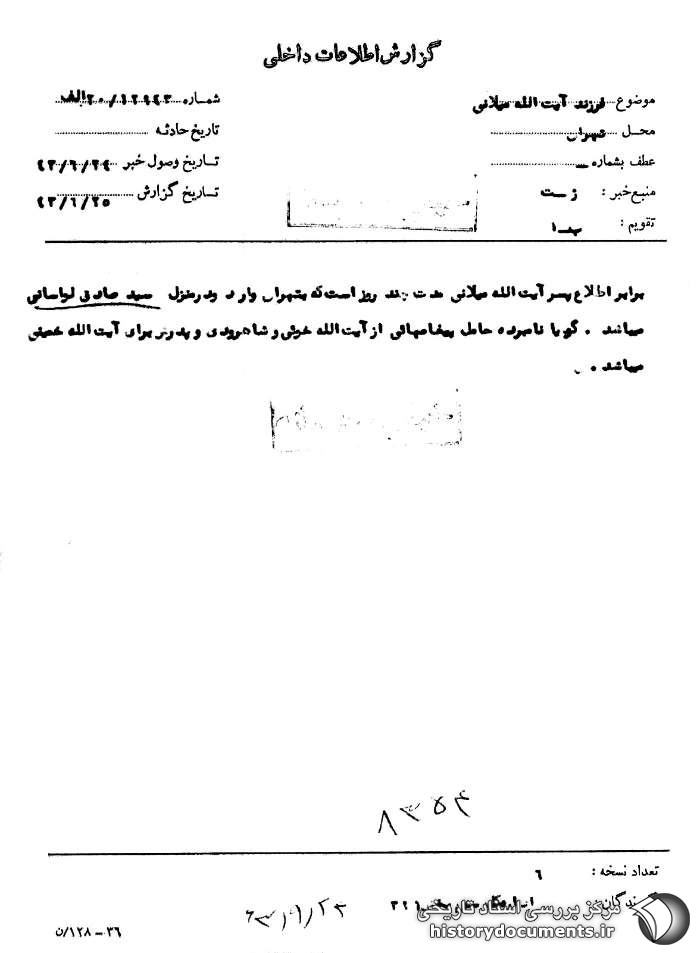 گزارش اطلاعات داخلی
موضوع فرزند آیت الله میلانی
محل تهران
عطف بشماره
منبع خبر : ژست
تقویم : ب-۱
شماره ۲۰/۱۲۹۴۳الف
تاریخ حادثه
تاریخ وصول خبر ۴۳/۶/۲۴
تاریخ گزارش ۴۳/۶/۲۵
برابر اطلاع پسر آیت الله میلانی مدت چند روز است که بتهران وارد ودر منزل سید صادق لواسانی
میباشد . گویا نامبرده حامل پیغامهائی از آیت الله خوئی و شاهرودی و پدرش برای آیت الله خمینی
میباشد .
۸۳۵۴
تعداد نسخه : ۶
گیرندگان ۳۲۱
۳۶ – ۱۲۸/ن
مرکز بررسی اسناد تاریخی
historydocuments.ir